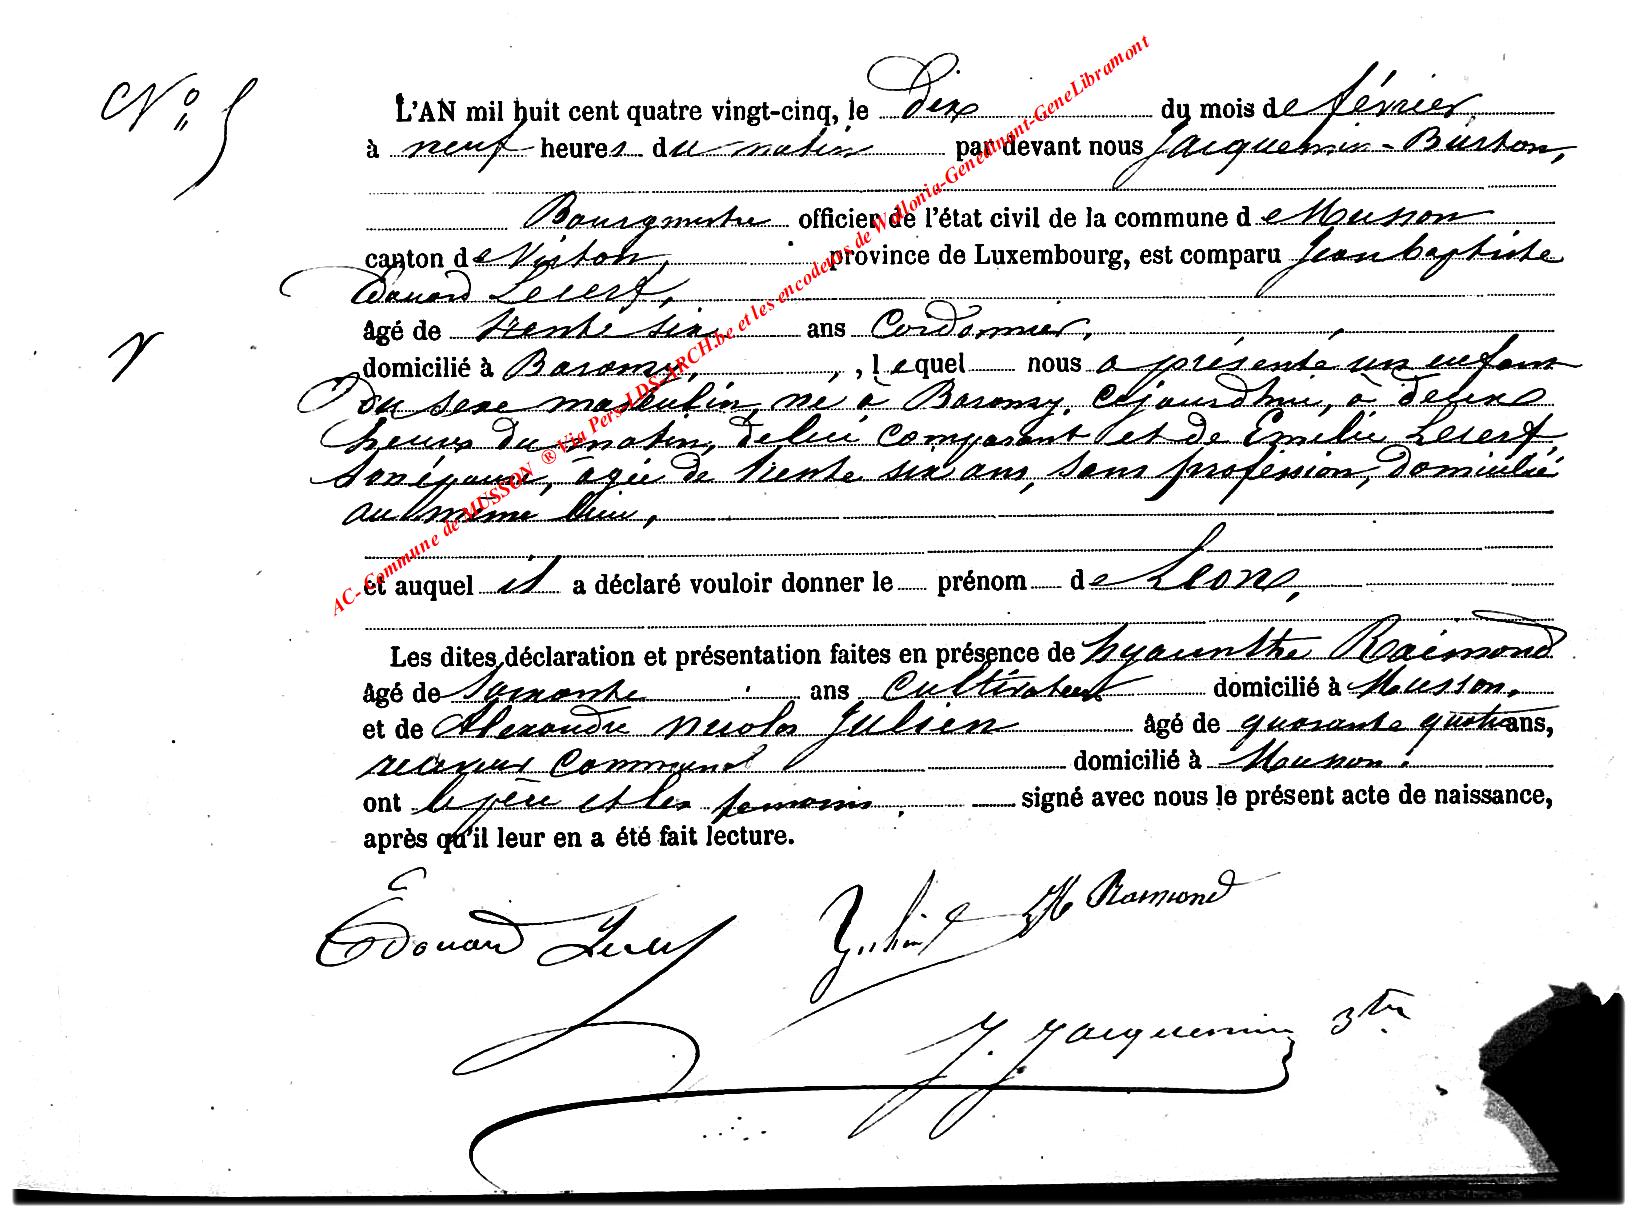 N° 5
L'AN mil huit cent quatre vingt-cinq, le Dix du mois de février
à neuf heures du matin par devant nous Jacquemin-Burton,
Bourgmestre officier de l'état civil de la commune de Musson
canton de Virton, province de Luxembourg, est comparu Jean baptiste
Edouard Lecerf,
âgé de trente six ans Cordonnier,
domicilié à Baranzy, lequel nous a présenté un enfant
du sexe masculin, né à Baranzy, cejourdhui, à deux
heures du matin, de lui comparant et de Emélie Lecerf,
son épouse, agée de trente six ans, sans profession, domiciliée
au même lieu,
et auquel il a déclaré vouloir donner le prénom de Léon,
Les dites déclaration et présentation faites en présence de hyacinthe Raimond
âgé de soixante ans Cultivateur domicilié à Musson,
et de Alexandre nicolas Julien âgé de quarante quatre ans,
receveur Communal domicilié à Musson.
ont le père et les temoins signé avec nous le présent acte de naissance,
après qu'il leur en a été fait lecture.
Edouard Lecerf Julien H Raimond
J. Jacquemin
AC- Commune de MUSSON ® Via Pers-LDS-ARCH.be et les encodeurs de Wallonia-Genealmant-GeneLibramont